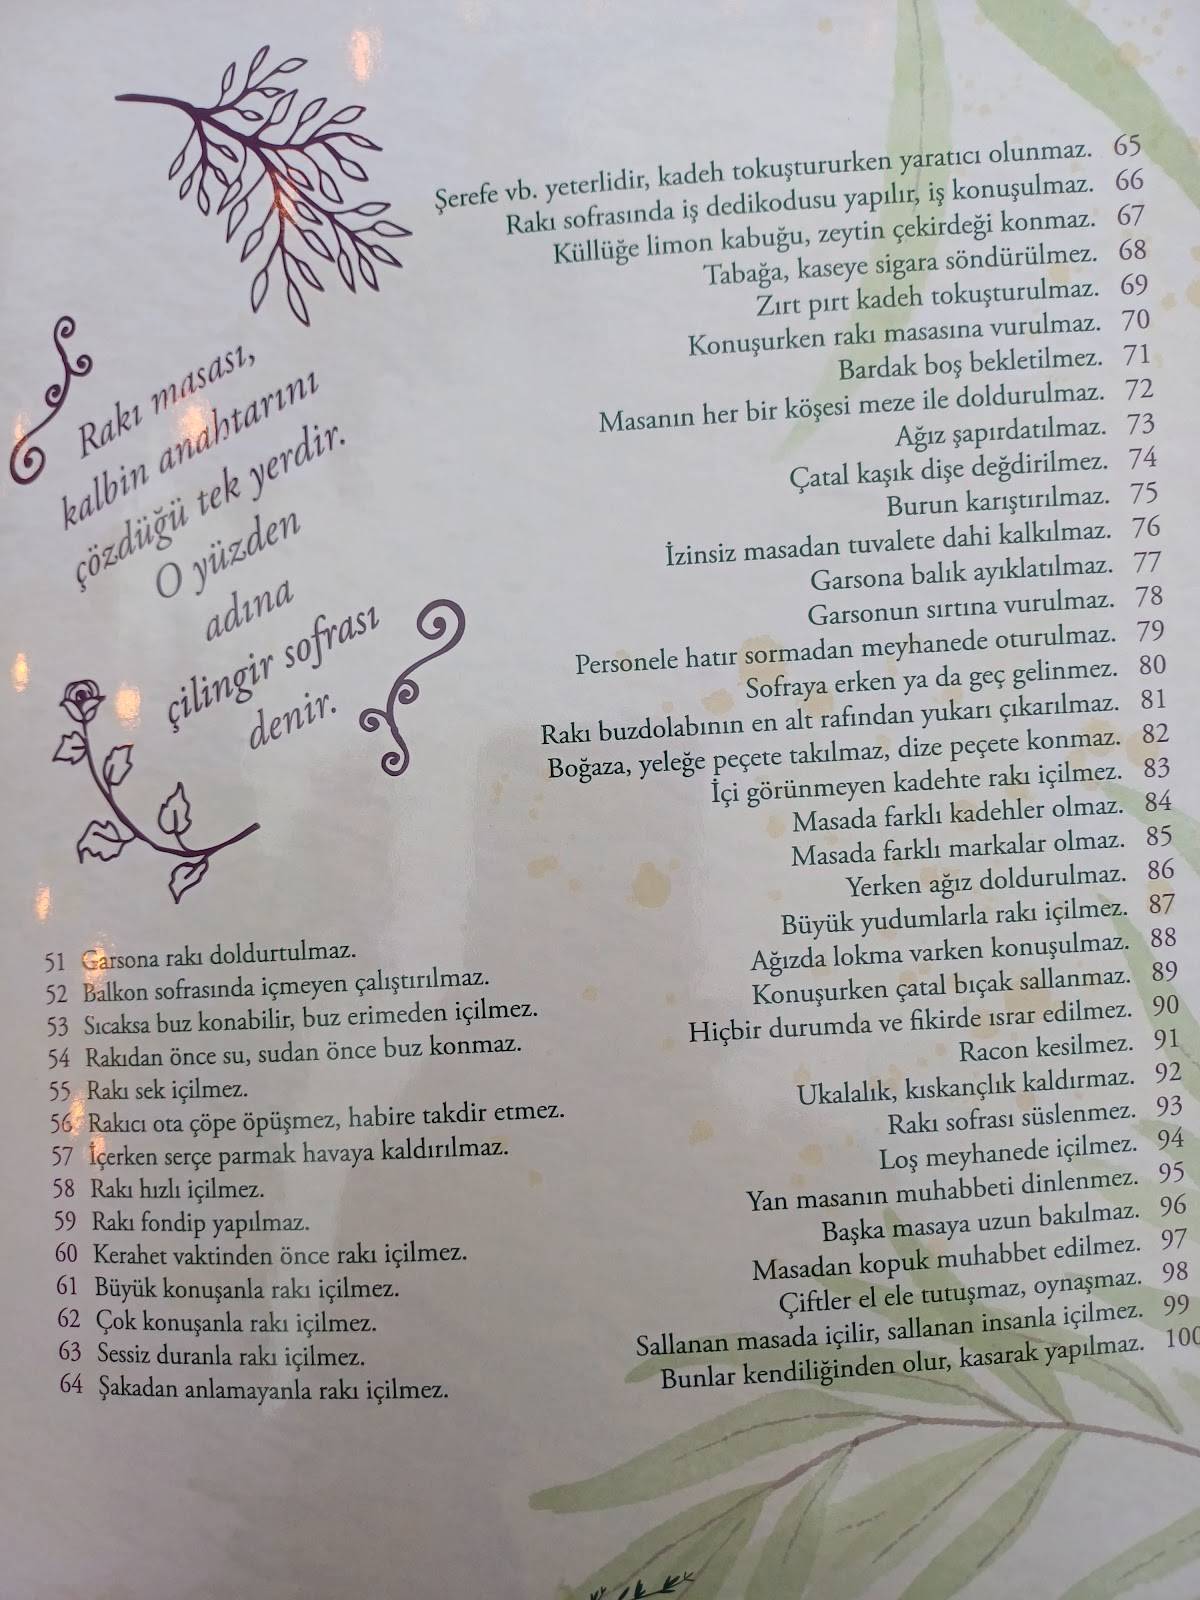 Rakı masası,
kalbin anahtarını
çözdüğü tek yerdir.
O yüzden
adına
çilingir sofrası
denir.
51 Garsona rakı doldurtulmaz.
52 Balkon sofrasında içmeyen çalıştırılmaz.
53 Sıcaksa buz konabilir, buz erimeden içilmez.
54 Rakıdan önce su, sudan önce buz konmaz.
55 Rakı sek içilmez.
56 Rakıcı ota çöpe öpüşmez, habire takdir etmez.
57 İçerken serçe parmak havaya kaldırılmaz.
58 Rakı hızlı içilmez.
59 Rakı fondip yapılmaz.
60 Kerahet vaktinden önce rakı içilmez.
61 Büyük konuşanla rakı içilmez.
62 Çok konuşanla rakı içilmez.
63 Sessiz duranla rakı içilmez.
64 Şakadan anlamayanla rakı içilmez.
Şerefe vb. yeterlidir, kadeh tokuştururken yaratıcı olunmaz. 65
Rakı sofrasında iş dedikodusu yapılır, iş konuşulmaz. 66
Küllüğe limon kabuğu, zeytin çekirdeği konmaz. 67
Tabağa, kaseye sigara söndürülmez. 68
Zırt pırt kadeh tokuşturulmaz. 69
Konuşurken rakı masasına vurulmaz. 70
Bardak boş bekletilmez. 71
Masanın her bir köşesi meze ile doldurulmaz. 72
Ağız şapırdatılmaz. 73
Çatal kaşık dişe değdirilmez. 74
Burun karıştırılmaz. 75
İzinsiz masadan tuvalete dahi kalkılmaz. 76
Garsona balık ayıklatılmaz. 77
Garsonun sırtına vurulmaz. 78
Personele hatır sormadan meyhanede oturulmaz. 79
Sofraya erken ya da geç gelinmez. 80
Rakı buzdolabının en alt rafından yukarı çıkarılmaz. 81
Boğaza, yeleğe peçete takılmaz, dize peçete konmaz. 82
İçi görünmeyen kadehte rakı içilmez. 83
Masada farklı kadehler olmaz. 84
Masada farklı markalar olmaz. 85
Yerken ağız doldurulmaz. 86
Büyük yudumlarla rakı içilmez. 87
Ağızda lokma varken konuşulmaz. 88
Konuşurken çatal bıçak sallanmaz. 89
Hiçbir durumda ve fikirde ısrar edilmez. 90
Racon kesilmez. 91
Ukalalık, kıskançlık kaldırmaz. 92
Rakı sofrası süslenmez. 93
Loş meyhanede içilmez. 94
Yan masanın muhabbeti dinlenmez. 95
Başka masaya uzun bakılmaz. 96
Masadan kopuk muhabbet edilmez. 97
Çiftler el ele tutuşmaz, oynaşmaz. 98
Sallanan masada içilir, sallanan insanla içilmez. 99
Bunlar kendiliğinden olur, kasarak yapılmaz. 100